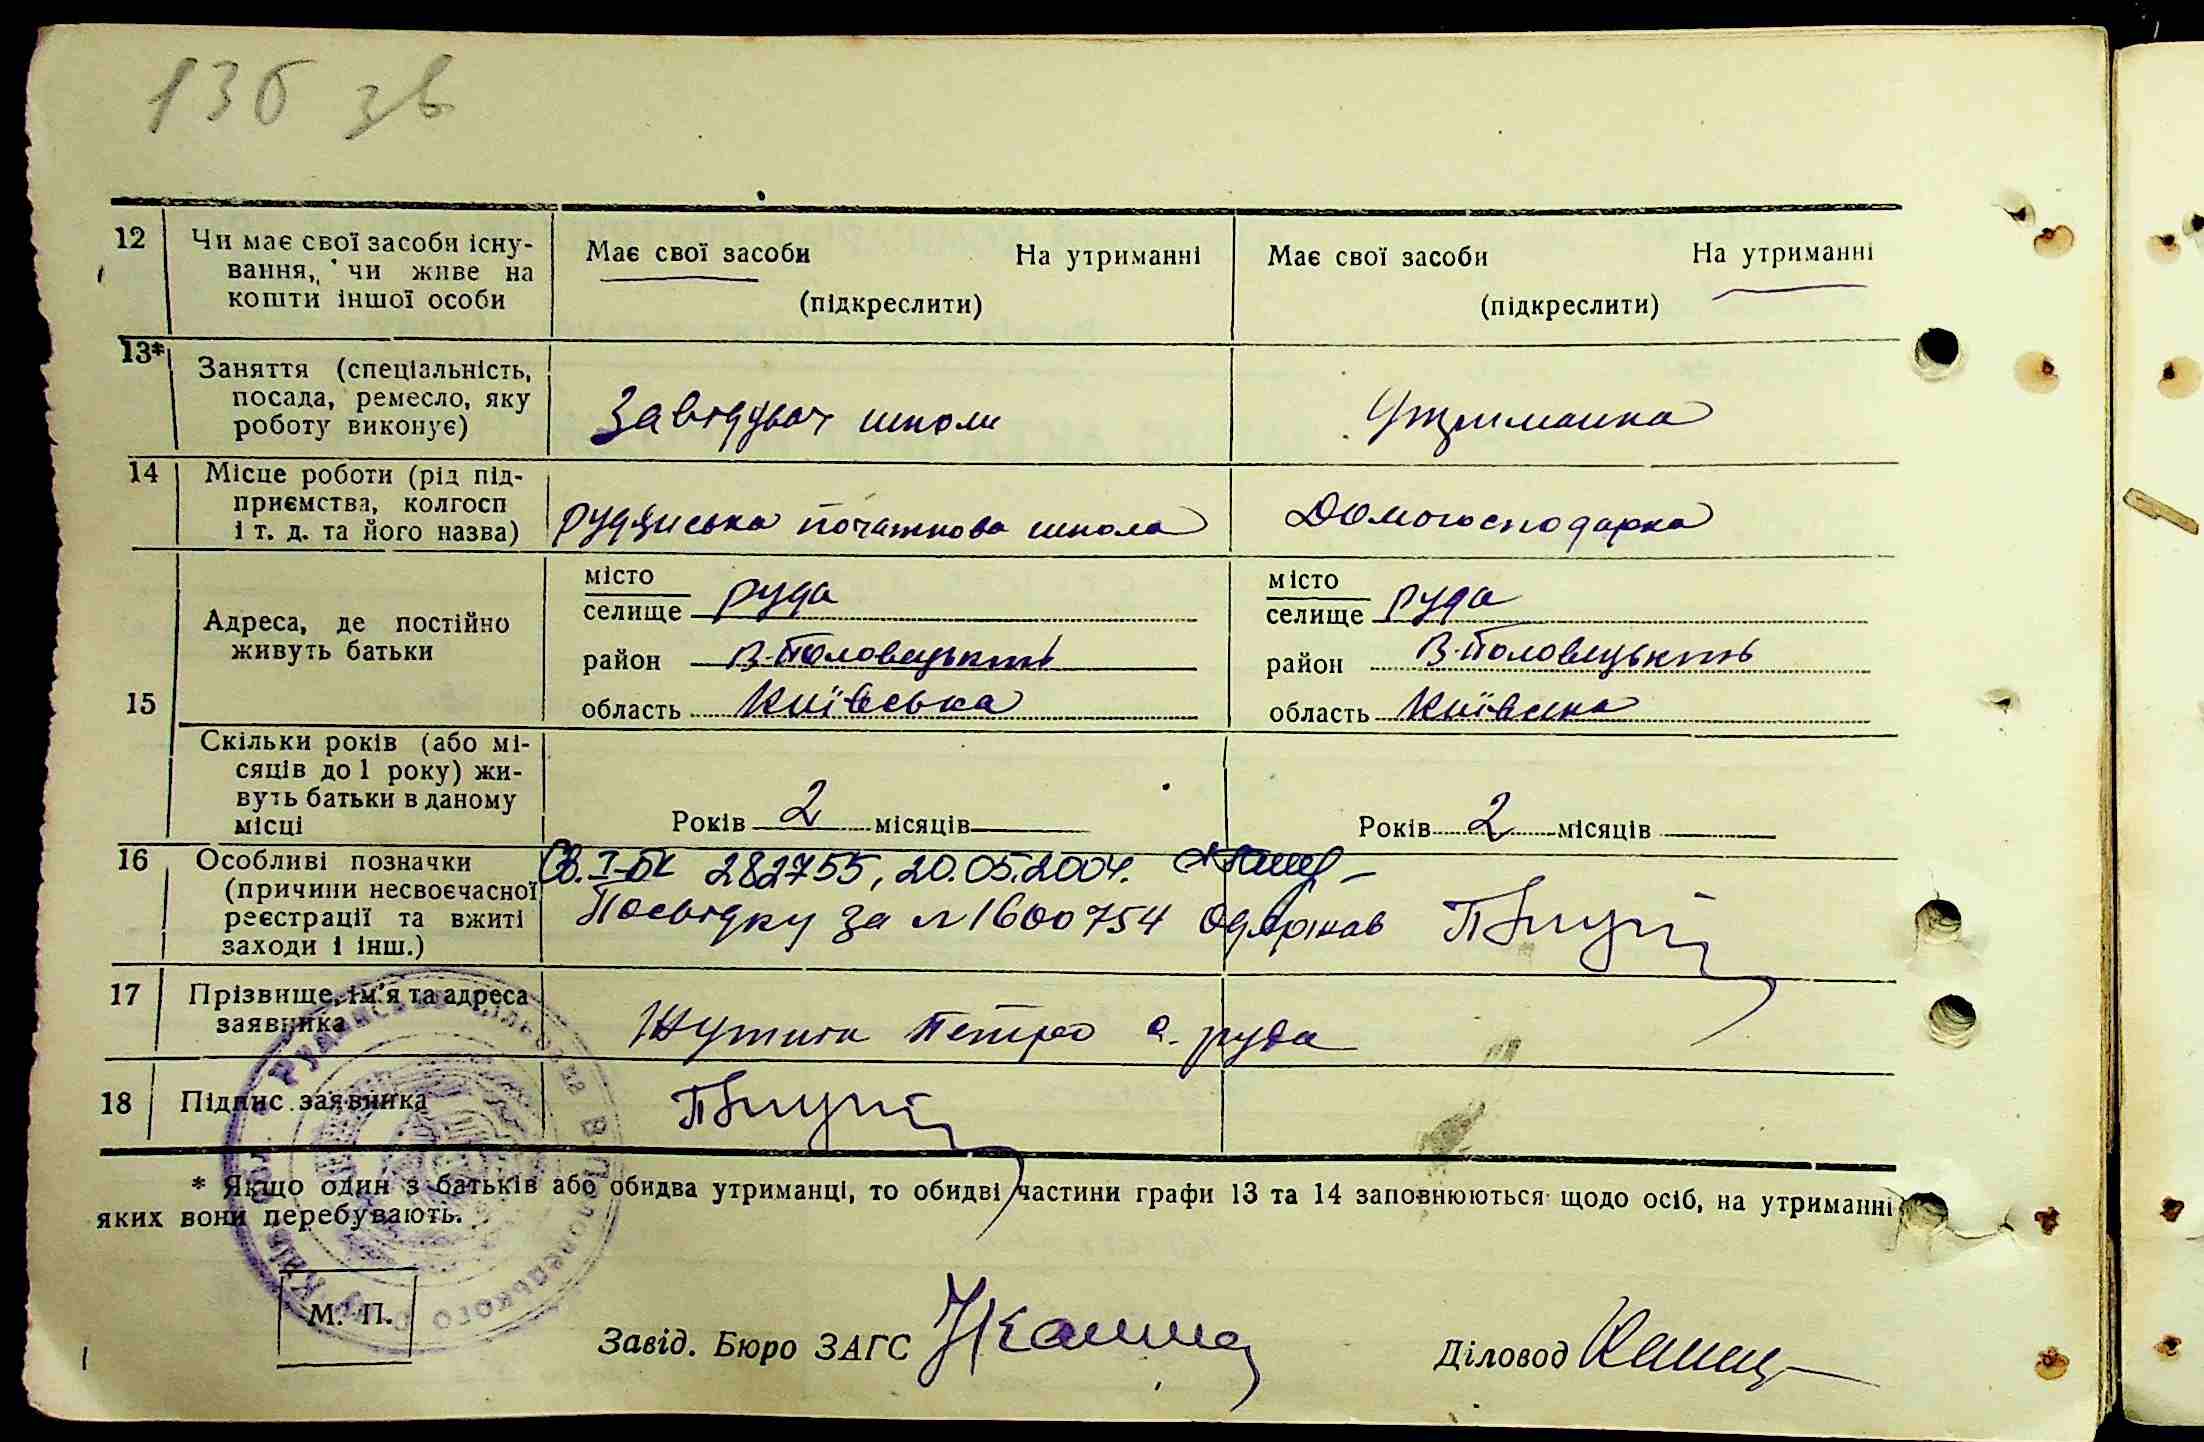 136 зв
12 Чи має свої засоби існу-
вання, чи живе на
кошти іншої особи
Має свої засоби На утриманні
(підкреслити)
Має свої засоби На утриманні
(підкреслити)
13* Заняття (спеціальність,
посада, ремесло, яку
роботу виконує)
Завідувач школи
Утриманка
14 Місце роботи (рід під-
приємства, колгосп
і т. д. та його назва)
Рудянська початкова школа
Домогосподарка
15 Адреса, де постійно
живуть батьки
місто
селище Руда
район В-Половецький
область Київська
місто
селище Руда
район В-Половецький
область Київська
Скільки років (або мі-
сяців до 1 року) жи-
вуть батьки в даному
місці
Років 2 місяців
Років 2 місяців
16 Особливі позначки
(причини несвоєчасної
реєстрації та вжиті
заходи і інш.)
Св. І-БК 282755, 20.05.2004.
Посвідку за № 1600754 одержав
17 Прізвище, ім'я та адреса
заявника
Петро с. Руда
18 Підпис заявника
* Якщо один з батьків або обидва утриманці, то обидві частини графи 13 та 14 заповнюються щодо осіб, на утриманні
яких вони перебувають.
М. П.
Завід. Бюро ЗАГС
Діловод